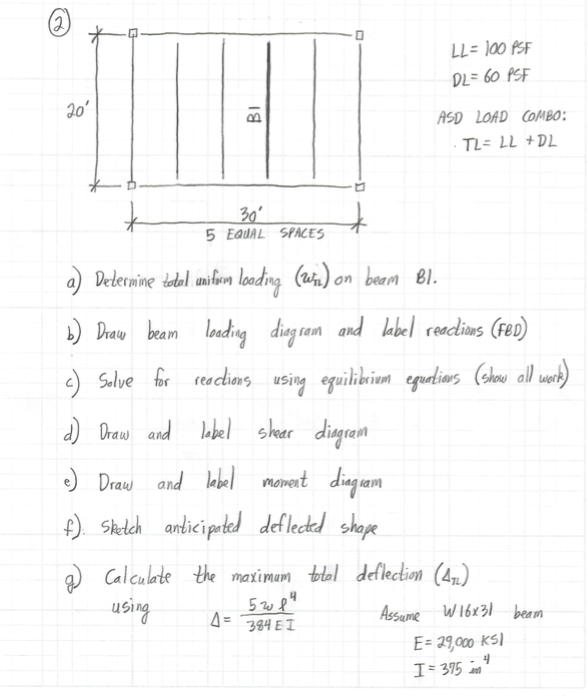 ②
LL = 100 PSF
DL = 60 PSF
ASD LOAD COMBO:
TL = LL + DL
20'
B1
30'
5 EQUAL SPACES
a) Determine total uniform loading (w_TL) on beam B1.
b) Draw beam loading diagram and label reactions (FBD)
c) Solve for reactions using equilibrium equations (show all work)
d) Draw and label shear diagram
e) Draw and label moment diagram
f). Sketch anticipated deflected shape
g) Calculate the maximum total deflection (Δ_TL)
using Δ = 5wl⁴ / 384EI Assume W16x31 beam
E = 29,000 KSI
I = 375 in⁴